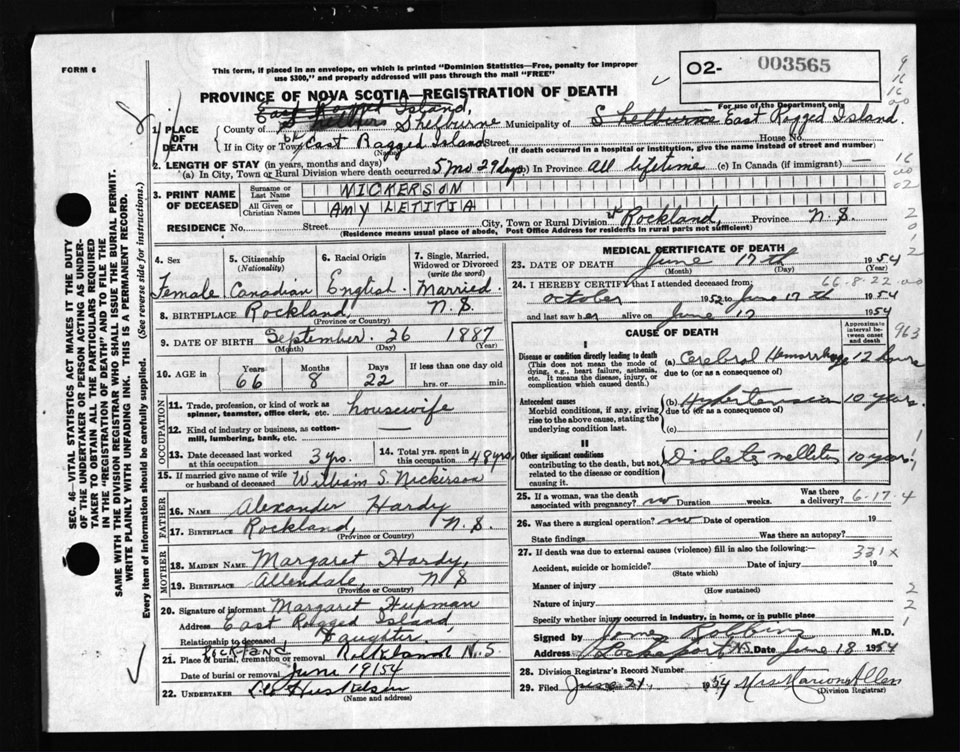 FORM 6
This form, if placed in an envelope, on which is printed "Dominion Statistics—Free, penalty for improper use $300," and properly addressed will pass through the mail "FREE"
O2- 003565
For use of the Department only
PROVINCE OF NOVA SCOTIA—REGISTRATION OF DEATH
East Ragged Island,
1. PLACE OF DEATH County of Shelburne Municipality of Shelburne East Ragged Island.
If in City or Town East Ragged Island Street House No.
(Name) (If death occurred in a hospital or institution, give the name instead of street and number)
2. LENGTH OF STAY (in years, months and days)
(a) In City, Town or Rural Division where death occurred 5 mo 29 days (b) In Province All lifetime (c) In Canada (if immigrant) —
3. PRINT NAME OF DECEASED Surname or Last Name NICKERSON
All Given or Christian Names AMY LETITIA
RESIDENCE No. Street City, Town or Rural Division Rockland, Province N.S.
(Residence means usual place of abode, Post Office Address for residents in rural parts not sufficient)
4. Sex Female
5. Citizenship (Nationality) Canadian
6. Racial Origin English
7. Single, Married, Widowed or Divorced (write the word) Married
8. BIRTHPLACE Rockland, N.S.
(Province or Country)
9. DATE OF BIRTH September 26 1887
(Month) (Day) (Year)
10. AGE in Years 66 Months 8 Days 22 If less than one day old hrs. or min.
OCCUPATION
11. Trade, profession, or kind of work as spinner, teamster, office clerk, etc. housewife
12. Kind of industry or business, as cotton-mill, lumbering, bank, etc.
13. Date deceased last worked at this occupation 3 yrs.
14. Total yrs. spent in this occupation 48 yrs.
15. If married give name of wife or husband of deceased William S. Nickerson
FATHER
16. Name Alexander Hardy
17. Birthplace Rockland, N.S.
(Province or Country)
MOTHER
18. Maiden Name Margaret Hardy,
19. Birthplace Allendale, N S
(Province or Country)
20. Signature of informant Margaret Hupman
Address East Ragged Island,
Relationship to deceased Daughter.
Rockland
21. Place of burial, cremation or removal Rockland N.S.
Date of burial or removal June 19 1954
22. Undertaker Huskilson
(Name and address)
MEDICAL CERTIFICATE OF DEATH
23. DATE OF DEATH June 17th 1954
(Month) (Day) (Year)
24. I HEREBY CERTIFY that I attended deceased from: 66-8-22
October 1952 to June 17th 1954
and last saw her alive on June 17 1954
CAUSE OF DEATH
Approximate interval between onset and death
963
I
Disease or condition directly leading to death (a) Cerebral Hemorrhage 12 hours
(This does not mean the mode of dying, e.g., heart failure, asthenia, etc. It means the disease, injury, or complication which caused death.)
due to (or as a consequence of)
Antecedent causes (b) Hypertension 10 years.
Morbid conditions, if any, giving rise to the above cause, stating the underlying condition last.
due to (or as a consequence of)
(c)
II
Other significant conditions contributing to the death, but not related to the disease or condition causing it.
Diabetes mellitus 10 years
25. If a woman, was the death associated with pregnancy? no Duration weeks. Was there a delivery? 6-17-4
26. Was there a surgical operation? no Date of operation 19
State findings Was there an autopsy?
27. If death was due to external causes (violence) fill in also the following:—
331x
Accident, suicide or homicide? Date of injury 19
(State which)
Manner of injury
(How sustained)
Nature of injury
Specify whether injury occurred in industry, in home, or in public place
Signed by Robbins M.D.
Address Lockeport N.S. Date June 18 1954
28. Division Registrar's Record Number
29. Filed June 21, 1954 Mrs Marion Allen
(Division Registrar)
SEC. 46—VITAL STATISTICS ACT MAKES IT THE DUTY OF THE UNDERTAKER OR PERSON ACTING AS UNDERTAKER TO OBTAIN ALL THE PARTICULARS REQUIRED IN THE "REGISTRATION OF DEATH" AND TO FILE THE SAME WITH THE DIVISION REGISTRAR WHO SHALL ISSUE THE BURIAL PERMIT. WRITE PLAINLY WITH UNFADING INK. THIS IS A PERMANENT RECORD.
Every item of information should be carefully supplied. (See reverse side for instructions.)